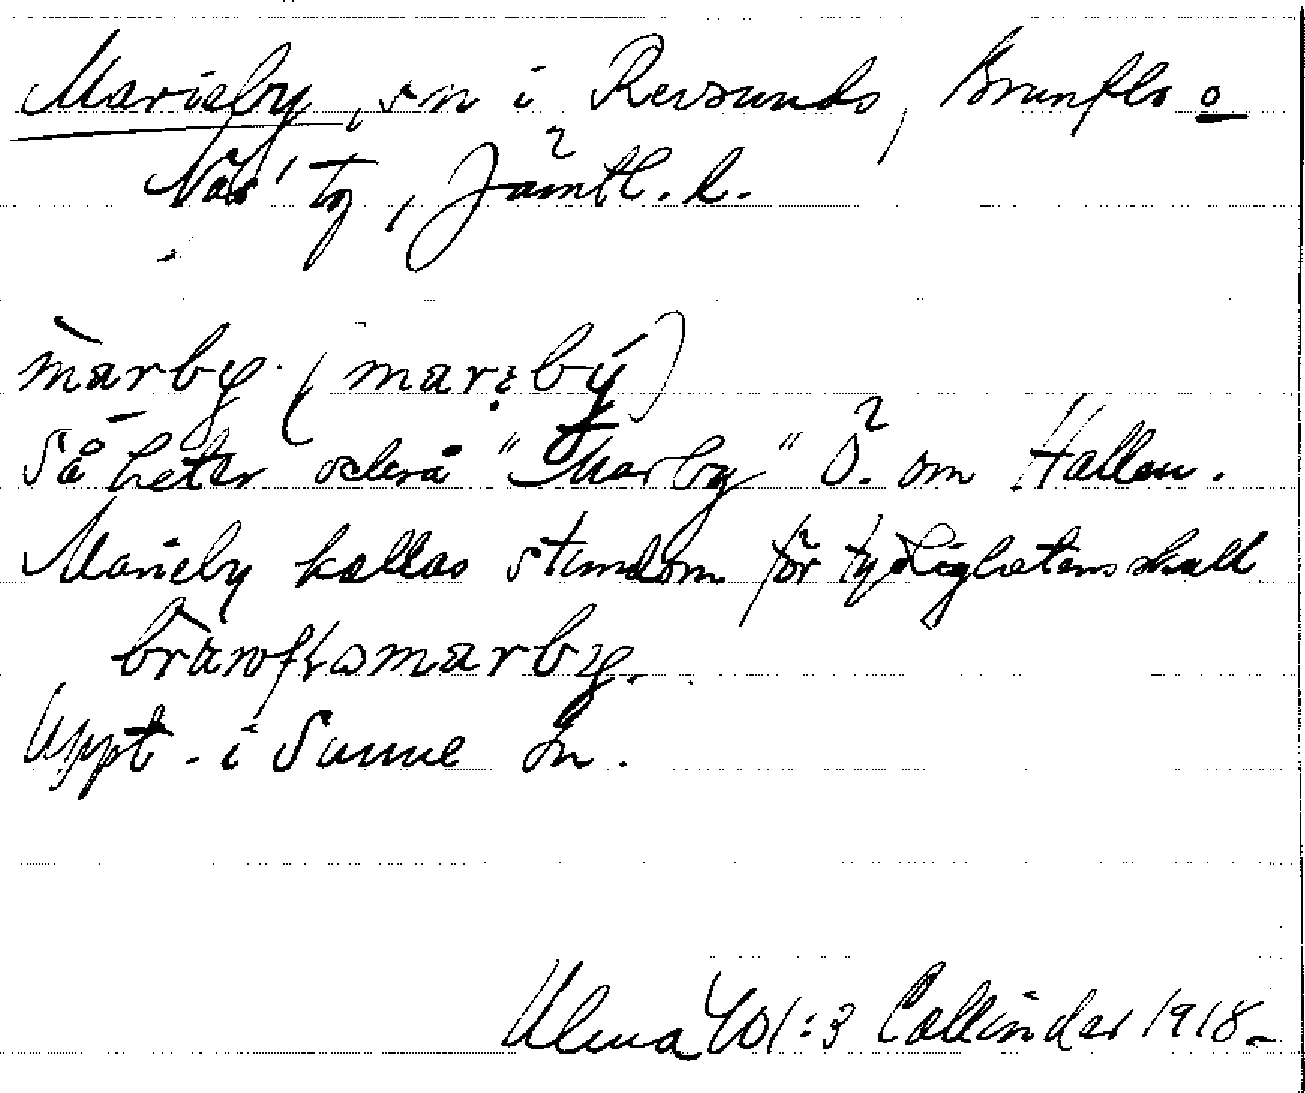 Marieby, sn i Revsunds, Brunflo o
Näs' tg, Jämtl. l.
mar̄by (mar:by)
Så heter också "Marby" Ö. om Hallen.
Marieby kallas stundom för tydlighetens skull
brawflωmarby.
Uppt. i Sunne sn.
Ulma 401:3 Collinder 1918.